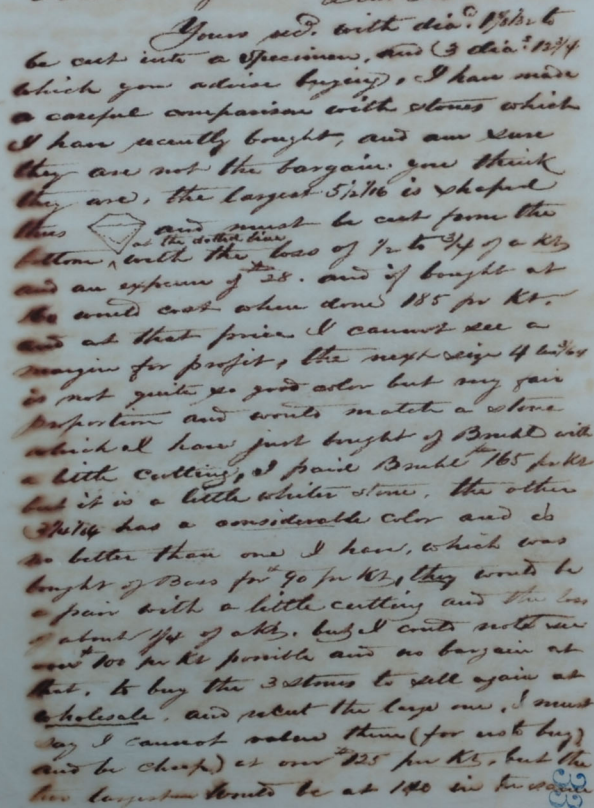 Yours recd. with diad. 1 9/32 to
be cut into a Specimen, and (3 dias. 12 3/4
which you advise buying, I have made
a careful comparison with stones which
I have recently bought, and am sure
they are not the bargain you think
they are, the largest 5 1/2 1/16 is shaped
thus and must be cut from the
at the dotted line
bottom ^ with the loss of 1/2 to 3/4 of a Kt
and an expense of $28. and if bought at
would cost when done 185 pr Kt.
and at that price I cannot see a
margin for profit, the next size 4
is not quite so good color but my fair
proportion and would match a stone
which I have just bought of Bruhl with
a little cutting, I paid Bruhl $165 pr Kt
but it is a little whiter stone. the other
has a considerable color and is
no better than one I have, which was
bought of Bass for $90 pr Kt, they would be
a pair with a little cutting and the loss
of about 1/4 of a Kt. but I could not see
over $100 per Kt possible and no bargain at
that. to buy the 3 stones to sell again at
wholesale. and recut the large one, I must
say I cannot value them (for us to buy
and be cheap) at over $125 per Kt. but the
two largest would be at 140 in